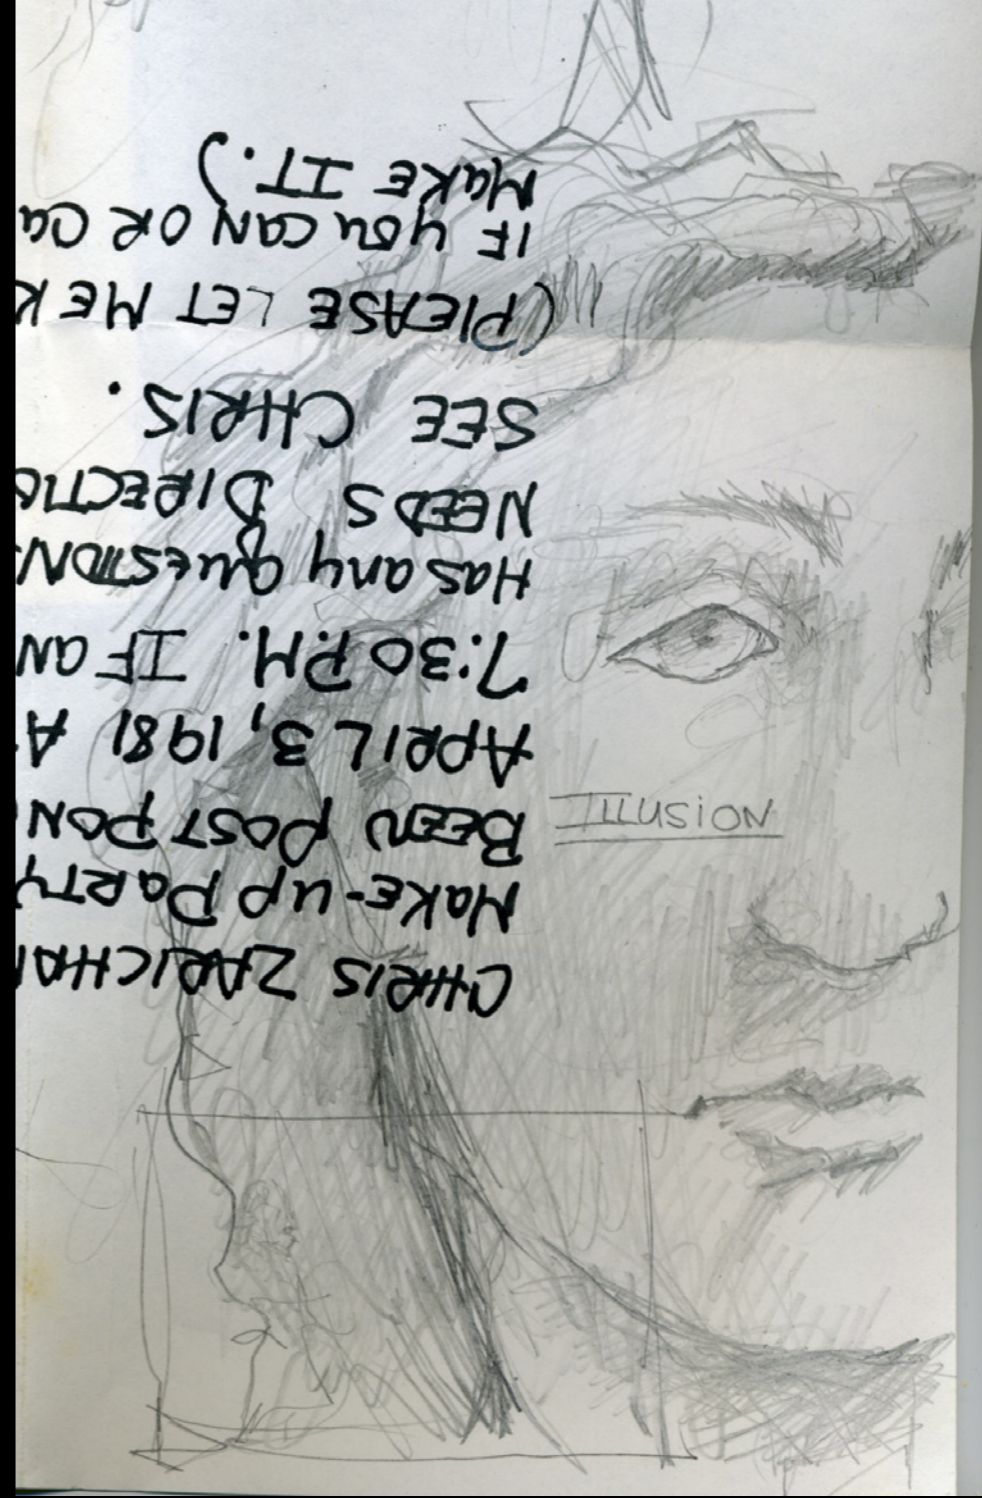 CHRIS ZARICHA
MaKE-up PaRTY
BEEN POSTPON
APRIL 3, 1981 A
7:30 P.M. IF an
Has any QuESTION
NEEDS DIRECTIO
SEE CHRIS.
(PLEASE LET ME K
IF you Can OR Ca
MaKE IT.)
ILLUSiON